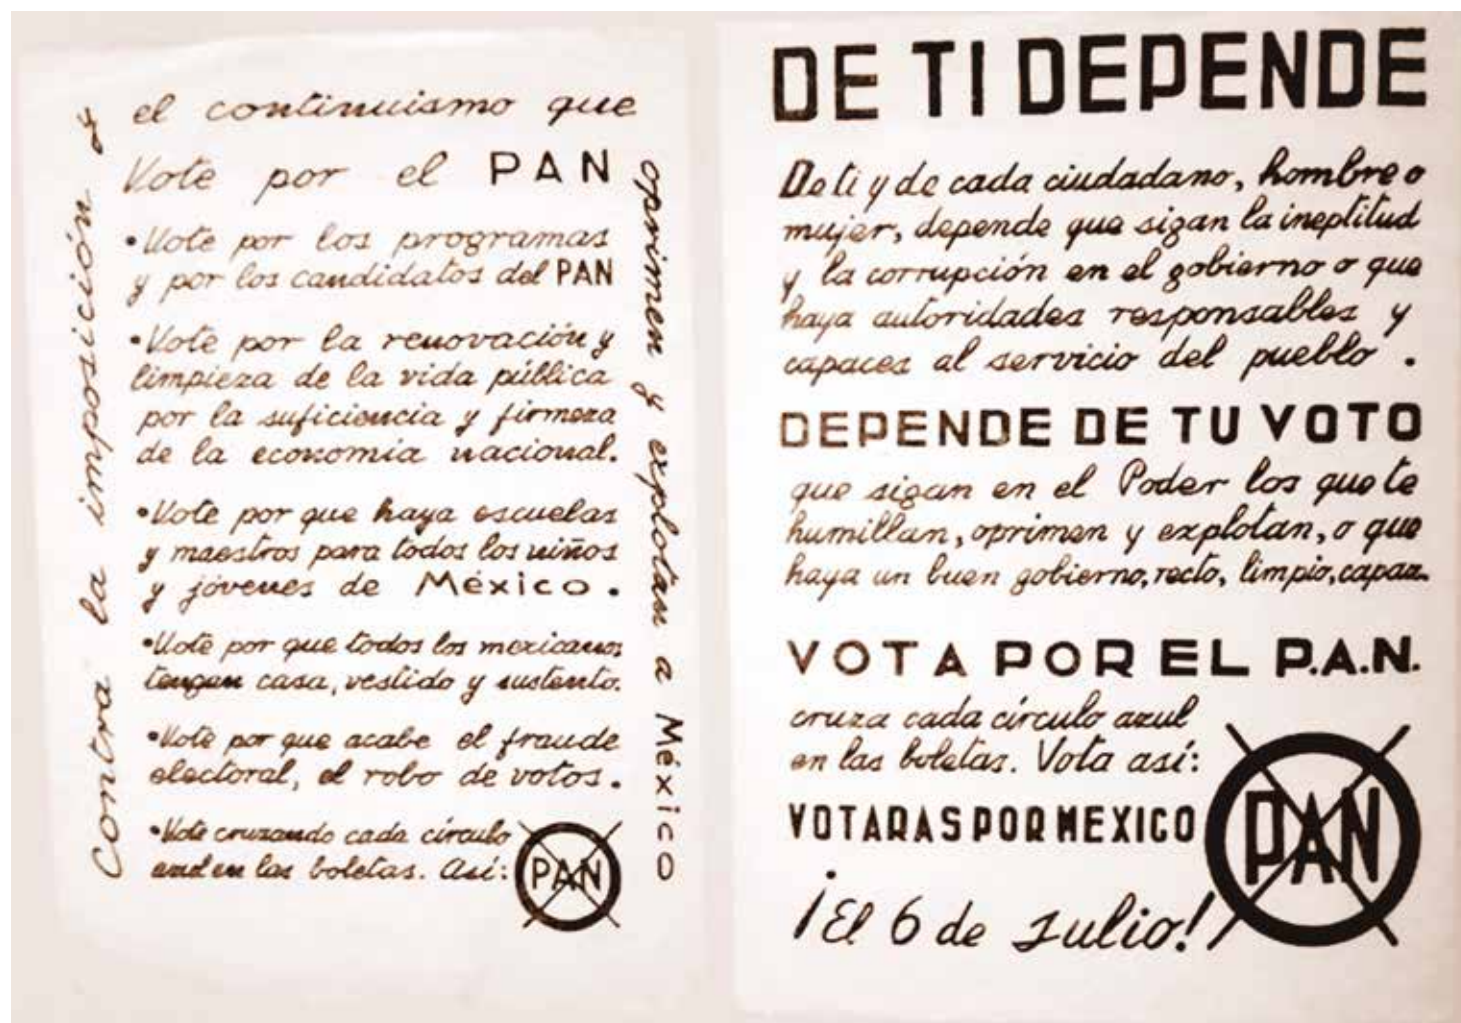 Contra la imposición y
el continuismo que
oprimen y explotan a México
Vote por el PAN
•Vote por los programas
y por los candidatos del PAN
•Vote por la renovación y
limpieza de la vida pública
por la suficiencia y firmeza
de la economía nacional.
•Vote por que haya escuelas
y maestros para todos los niños
y jóvenes de México.
•Vote por que todos los mexicanos
tengan casa, vestido y sustento.
•Vote por que acabe el fraude
electoral, el robo de votos.
•Vote cruzando cada círculo
azul en las boletas. Así:
PAN
DE TI DEPENDE
De ti y de cada ciudadano, hombre o
mujer, depende que sigan la ineptitud
y la corrupción en el gobierno o que
haya autoridades responsables y
capaces al servicio del pueblo.
DEPENDE DE TU VOTO
que sigan en el Poder los que te
humillan, oprimen y explotan, o que
haya un buen gobierno, recto, limpio, capaz.
VOTA POR EL P.A.N.
cruza cada círculo azul
en las boletas. Vota así:
VOTARAS POR MEXICO
PAN
¡El 6 de Julio!